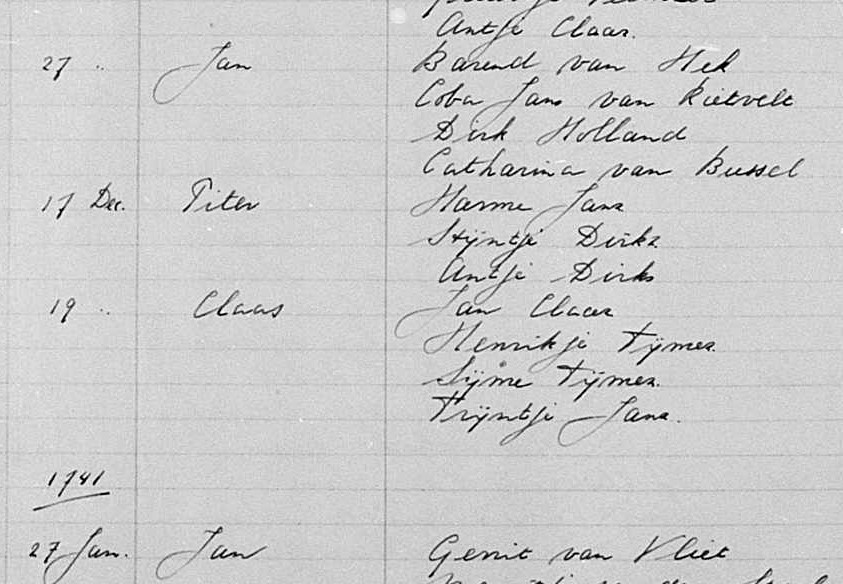 Antje Claas.
27 " Jan Barend van Hek
Coba Jans van Rietvelt
Dirk Holland
Catharina van Bussel
17 Dec. Piter Harme Jans
Stijntje Dirks
Antje Dirks
19 " Claas Jan Claas
Henrikje Tijmes.
Sijme Tijmes.
Trijntje Jans.
1741
27 Jan. Jan Gerrit van Vliet